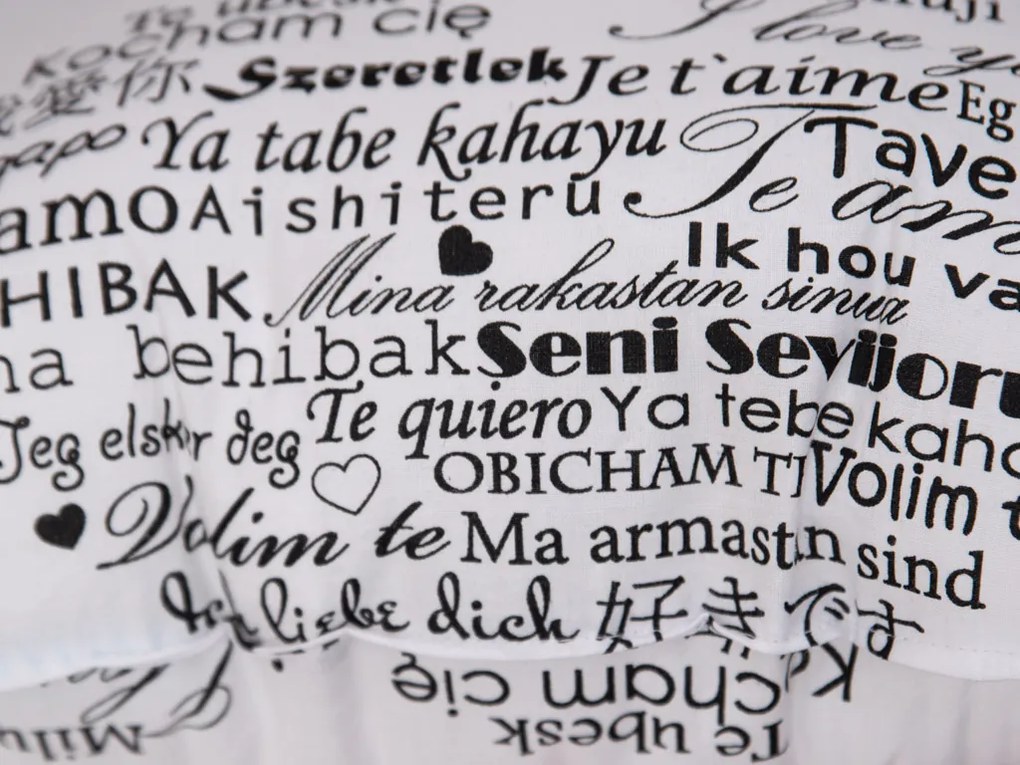 Te ubesk
Kocham cię
I love
我爱你 Szeretlek Je t`aime Eg
Ya tabe kahayu Te am Tave
amo Aishiteru
HIBAK Mina rakastan sinua Ik hou va
na behibak Seni Sevijoru
Jeg elsker deg Te quiero Ya tebe kaha
OBICHAM TI Volim t
Volim te Ma armastan sind
Ich liebe dich 好きです
Kocham cię
Te ubesk
Milu